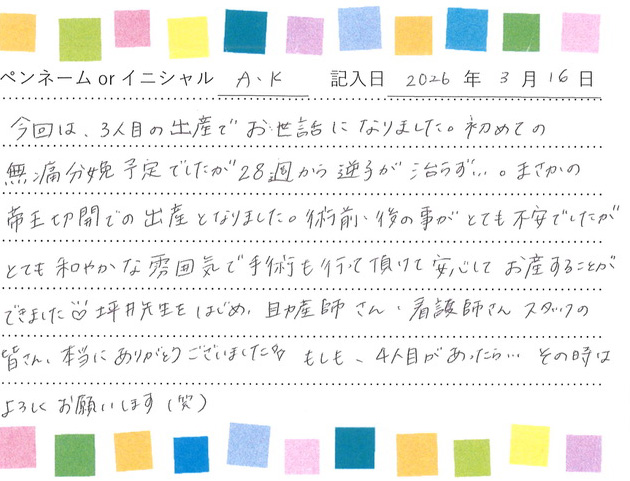 ペンネーム or イニシャル A.K 記入日 2026 年 3 月 16 日
今回は、3人目の出産でお世話になりました。初めての
無痛分娩予定でしたが28週から逆子が治らず…。まさかの
帝王切開での出産となりました。術前、後の事がとても不安でしたが
とても和やかな雰囲気で手術も行って頂けて安心してお産することが
できました♡坪井先生をはじめ、助産師さん、看護師さんスタッフの
皆さん、本当にありがとうございました もしも、4人目があったら… その時は
よろしくお願いします(笑)